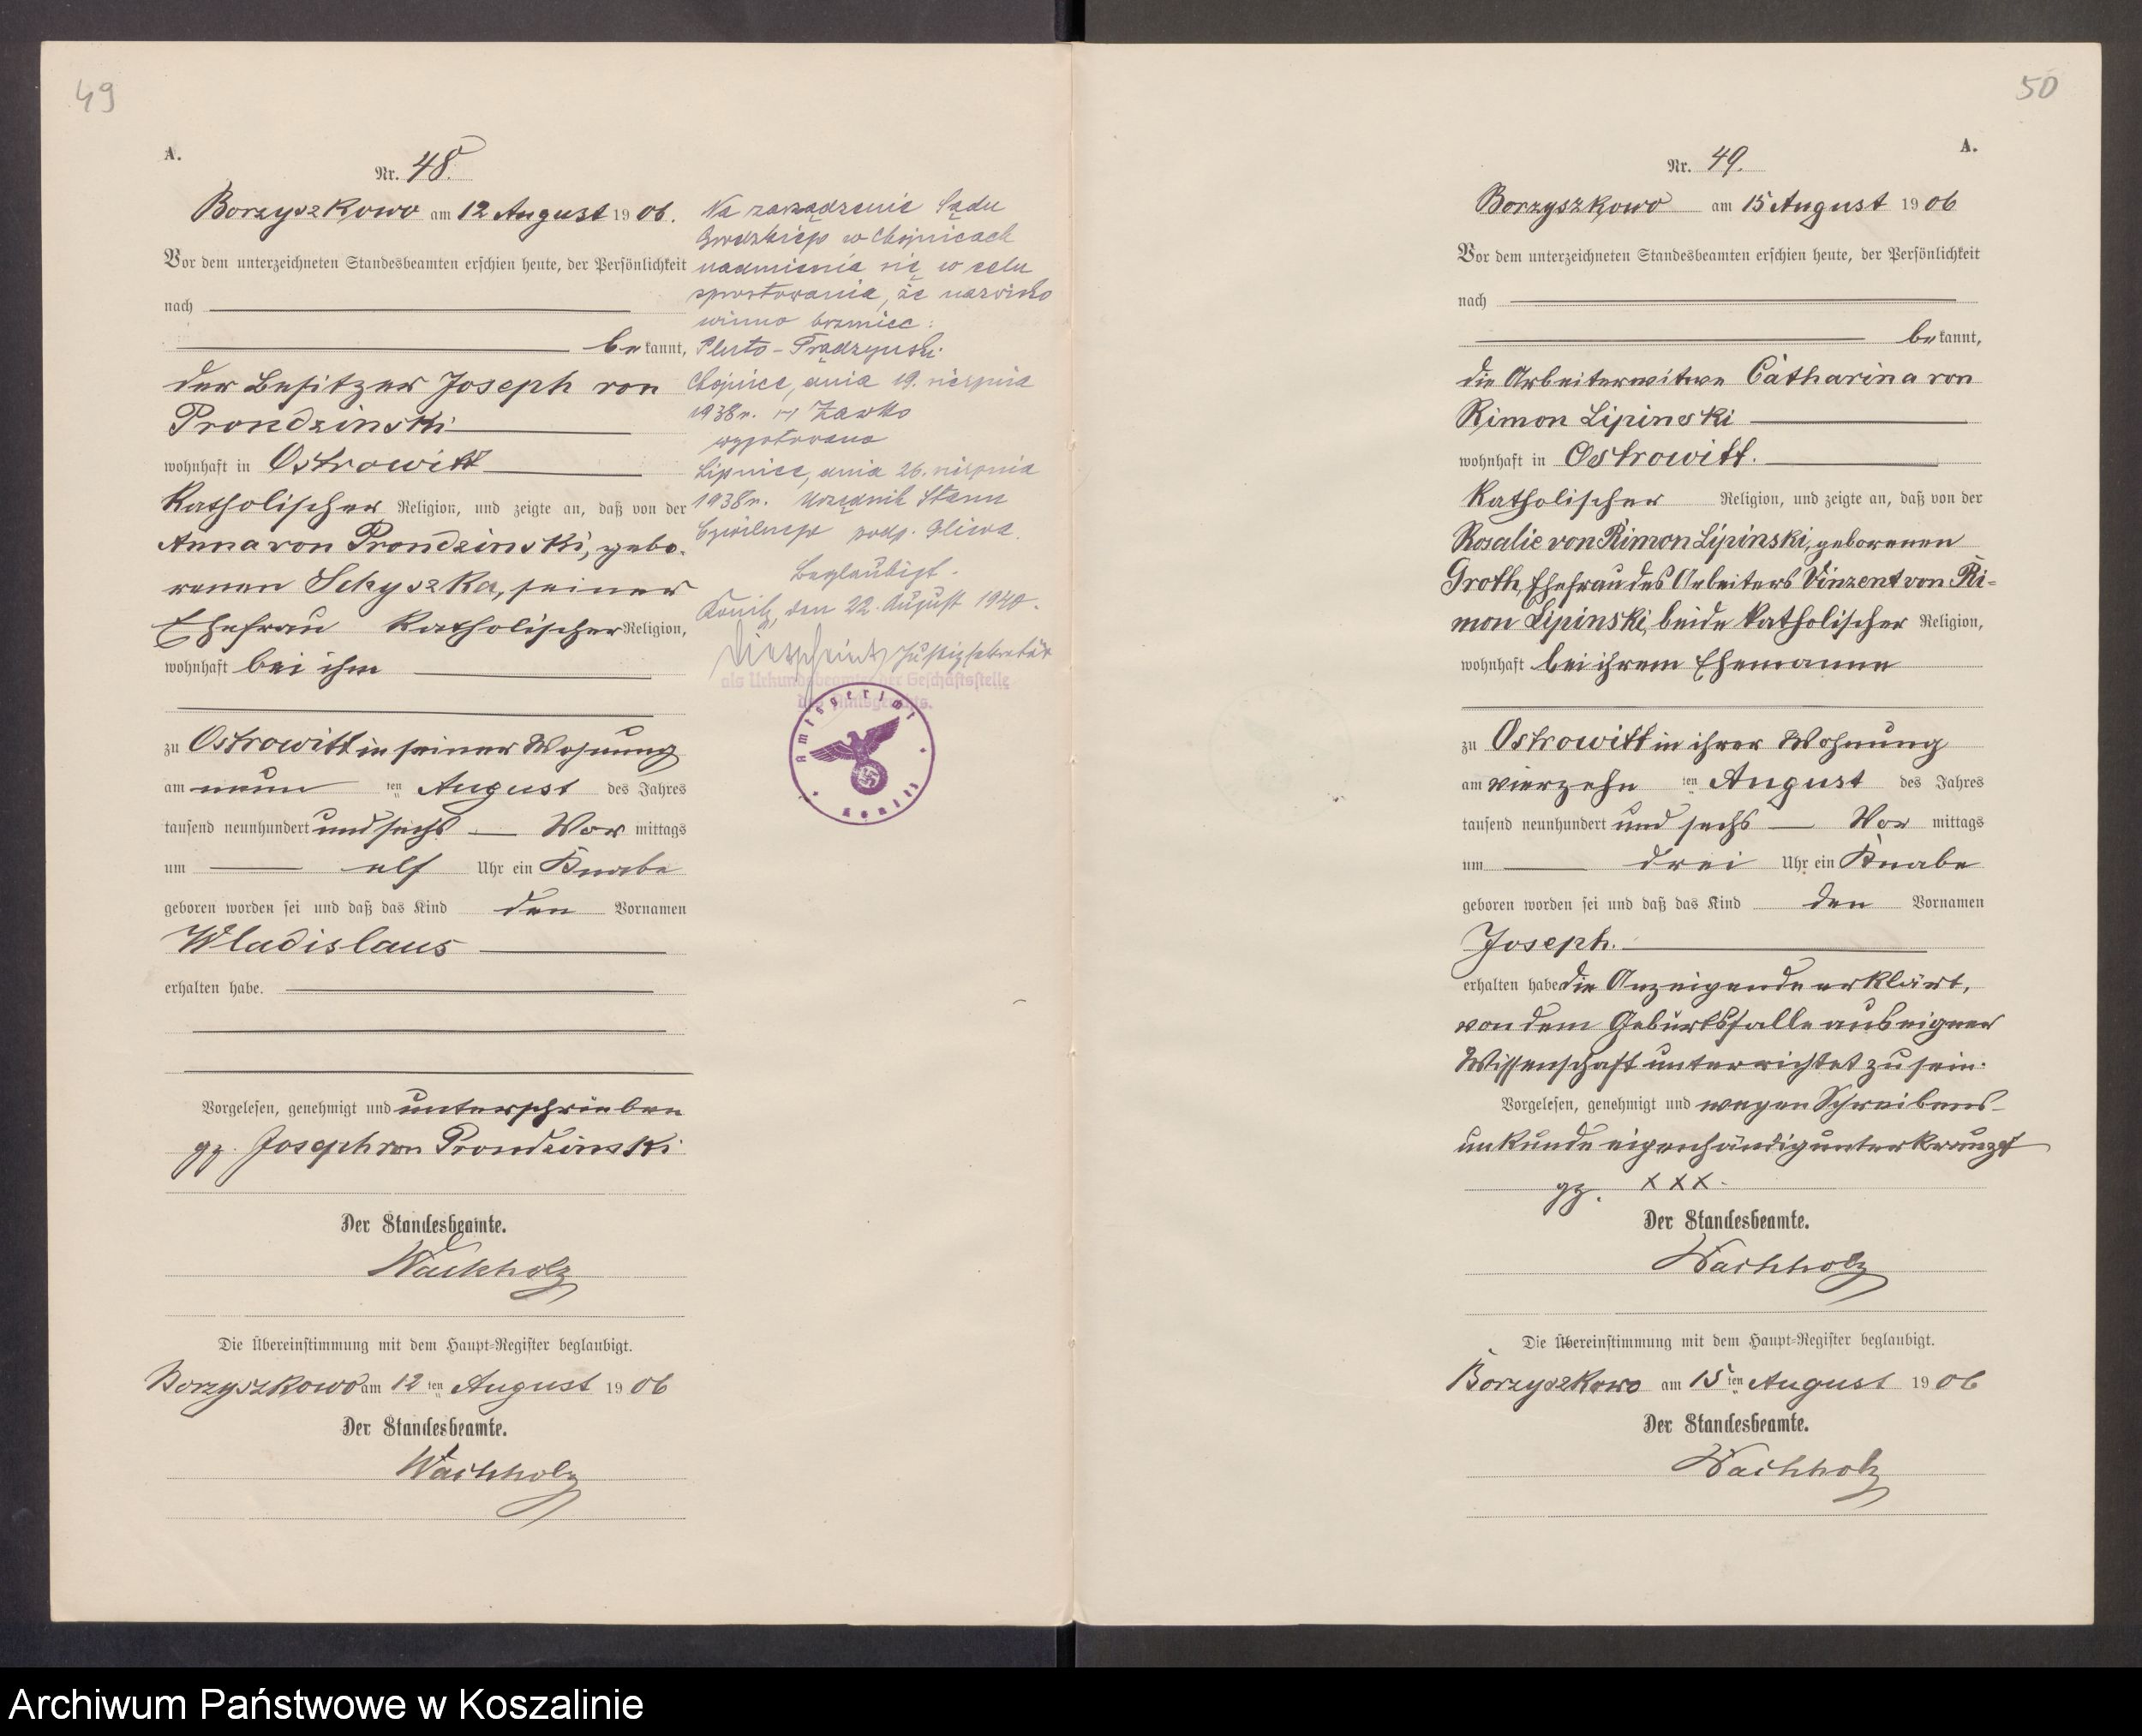 49
A.
Nr. 48.
Borzyszkowo am 12 August 1906.
Vor dem unterzeichneten Standesbeamten erschien heute, der Persönlichkeit
nach
bekannt,
der Besitzer Joseph von
Prondzinski
wohnhaft in Ostrowitt
katholischer Religion, und zeigte an, daß von der
Anna von Prondzinski, gebo-
renen Schyszka, seiner
Ehefrau katholischer Religion,
wohnhaft bei ihm
zu Ostrowitt in seiner Wohnung
am neun ten August des Jahres
tausend neunhundert und sechs Vor mittags
um elf Uhr ein Knabe
geboren worden sei und daß das Kind den Vornamen
Wladislaus
erhalten habe.
Vorgelesen, genehmigt und unterschrieben
gz. Joseph von Prondzinski
Der Standesbeamte.
Wachholz
Die Übereinstimmung mit dem Haupt-Register beglaubigt.
Borzyszkowo am 12 ten August 1906
Der Standesbeamte.
Wachholz
Na zarządzenie Sądu
Grodzkiego w Chojnicach
nadmienia się w celu
sprostowania, że nazwisko
winno brzmieć:
Pluto-Prądzyński
Chojnice, dnia 19. sierpnia
1938 r. (-) Zawko
wygotowano
Lipnice, dnia 26. sierpnia
1938 r. Urzędnik Stanu
Cywilnego podp. Gliwa.
Beglaubigt.
Konitz, den 22. August 1940.
Justizsekretär
als Urkundsbeamter der Geschäftsstelle
des Amtsgerichts.
Amtsgericht
Konitz
50
A.
Nr. 49.
Borzyszkowo am 15 August 1906
Vor dem unterzeichneten Standesbeamten erschien heute, der Persönlichkeit
nach
bekannt,
die Arbeiterwitwe Catharina von
Rimon Lipinski
wohnhaft in Ostrowitt.
katholischer Religion, und zeigte an, daß von der
Rosalie von Rimon Lipinski, geborenen
Groth, Ehefrau des Arbeiters Vinzent von Ri-
mon Lipinski, beide katholischer Religion,
wohnhaft bei ihrem Ehemanne
zu Ostrowitt in ihrer Wohnung
am vierzehn ten August des Jahres
tausend neunhundert und sechs Vor mittags
um drei Uhr ein Knabe
geboren worden sei und daß das Kind den Vornamen
Joseph.
erhalten habe die Anzeigende erklärt,
von dem Geburtsfalle aus eigner
Wissenschaft unterrichtet zu sein.
Vorgelesen, genehmigt und wegen Schreibens-
unkunde eigenhändig unterkreuzt
gz. XXX.
Der Standesbeamte.
Wachholz
Die Übereinstimmung mit dem Haupt-Register beglaubigt.
Borzyszkowo am 15 ten August 1906
Der Standesbeamte.
Wachholz
Archiwum Państwowe w Koszalinie